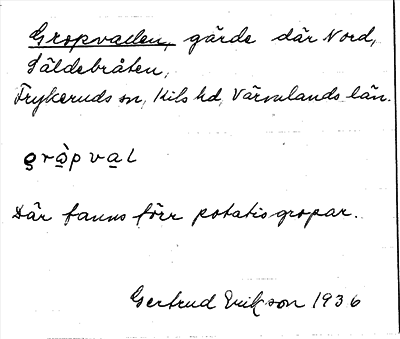 Gropvallen, gärde där Nord,
Säldebråten,
Frykeruds sn, Kils hd, Värmlands län.
gro᷇pval
Där fanns förr potatisgropar.
Gertrud Erikson 1936